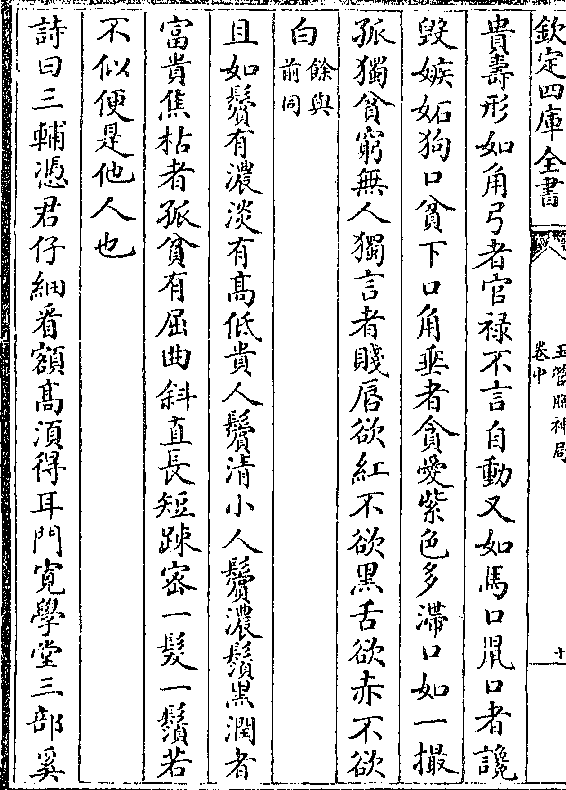 欽定四庫全書
玉管照神局
卷中
十
貴壽形如角弓者官禄不言自動又如馬口鼠口者讒
毀嫉妬狗口貧下口角垂者貪愛紫色多滯口如一撮
孤獨貧窮無人獨言者賤唇欲紅不欲黑舌欲赤不欲
白餘與前同
且如鬢有濃淡有髙低貴人鬢清小人鬢濃鬚黒潤者
富貴焦枯者孤貧有屈曲斜直長短踈密一髮一鬚若
不似便是他人也
詩曰三輔慿君仔細看額髙湏得耳門寛學堂三部奚